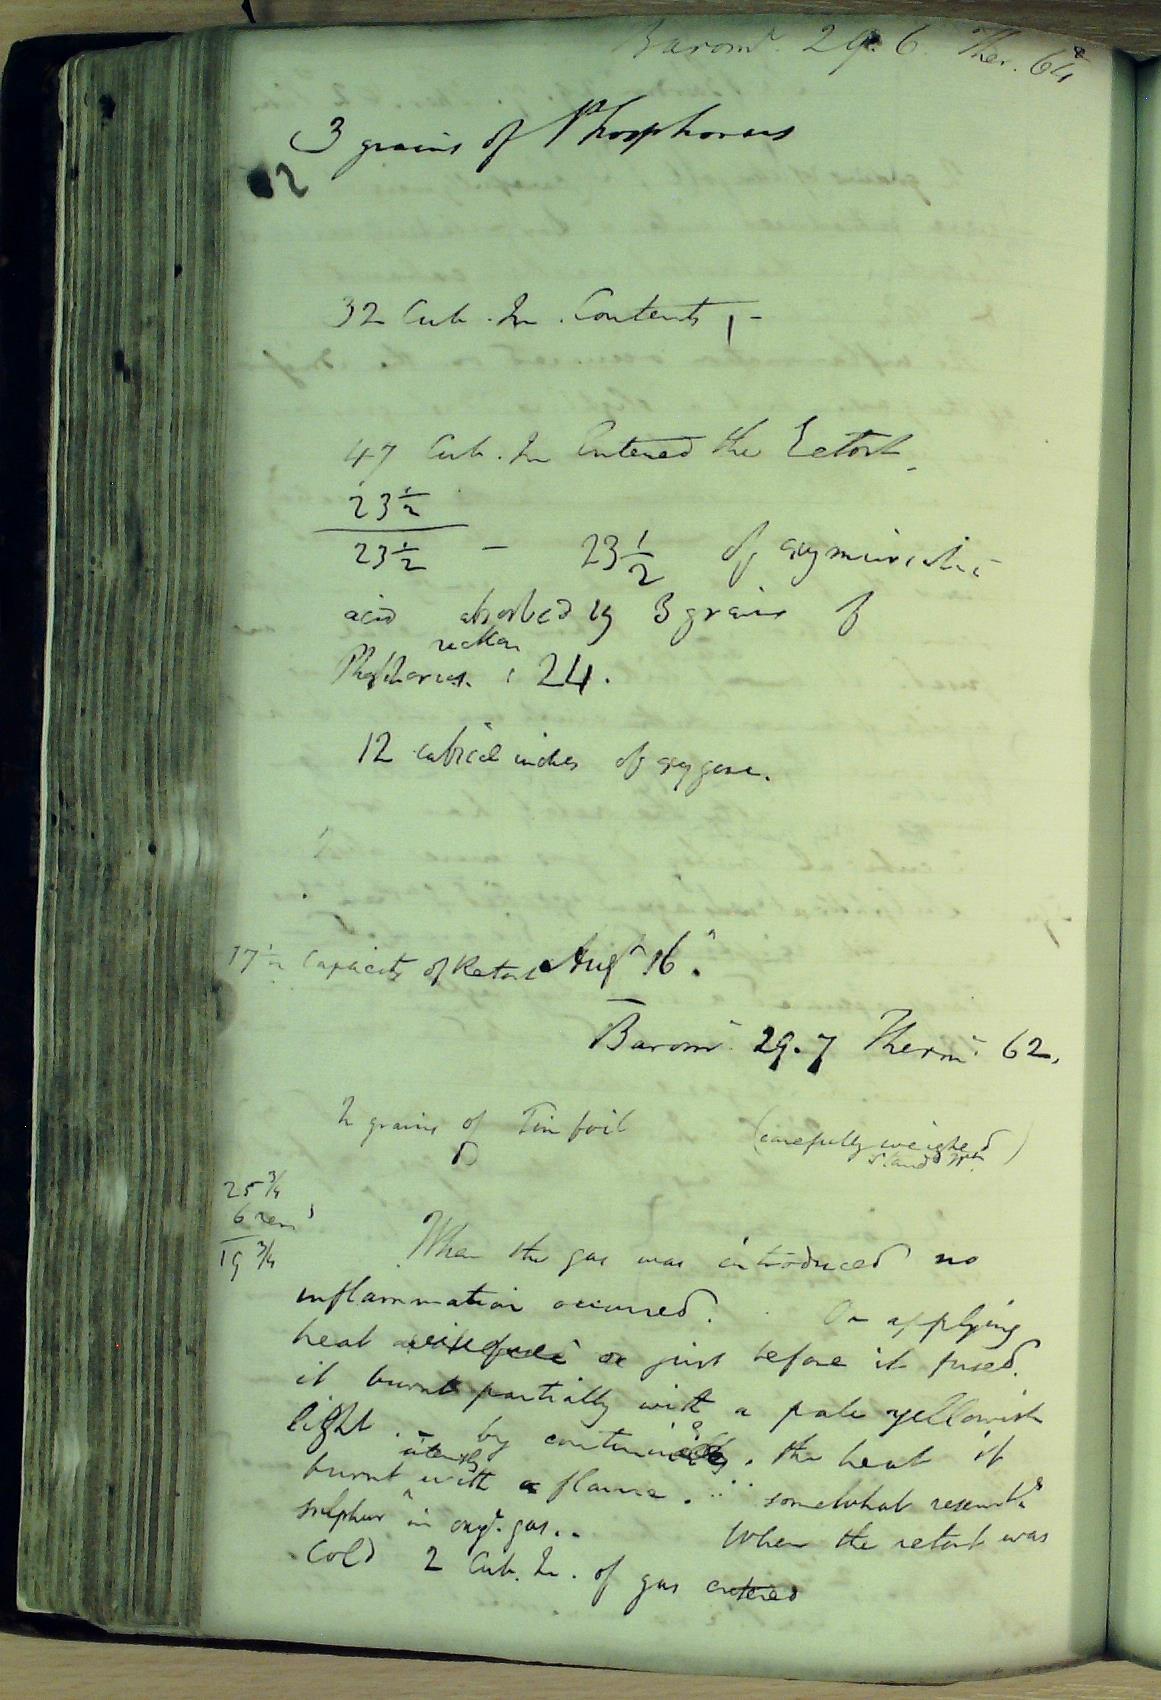 Barom.r 29.6. Ther. 64
3 grains of Phosphorus
12
32 Cub. In. Contents, -
47 Cub. In Entered the Retort
23 1/2
23 1/2 - 23 1/2 of oxymuriatic
acid absorbed by 3 grains of
reckon
Phosphorus. : 24.
12 cubical inches of oxygene.
17 1/2 Capacity of Retort Aug.t 16.
Barom.r 29.7 Therm.r 62.
2 grains of Tin foil (carefully weighed)
25 3/4
6 rem
19 3/4
When the gas was introduced no
inflammation occurred. On applying
heat or just before it fused.
it burnt partially with a pale yellowish
light. - by continuing the heat it
intensely
burnt with a flame. somewhat resemb.g
sulphur in oxy.e gas..
When the retort was
Cold 2 Cub. In. of gas entered